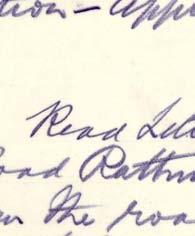 tion – app
Read Lel
oad Rathm
on the roa